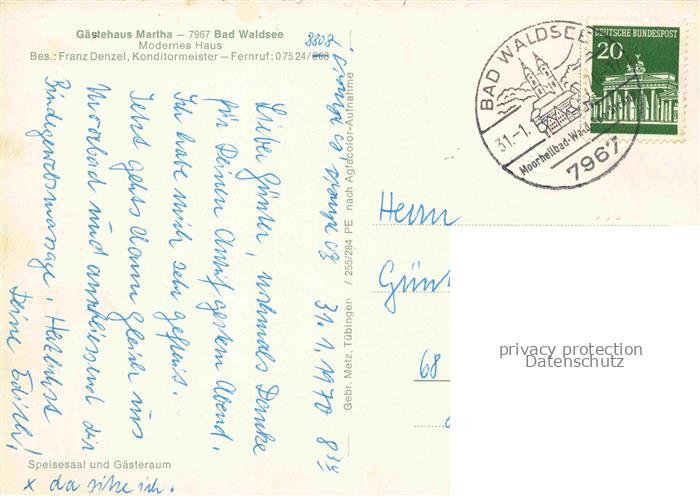 Gästehaus Martha — 7967 Bad Waldsee
Modernes Haus
8808
Bes.: Franz Denzel, Konditormeister — Fernruf: 07524/868
31.1.1970 8³⁴
Lieber Günter, nochmals Danke
für Deinen Anruf gestern Abend.
Ich habe mich sehr gefreut.
Jetzt gehts dann gleich ins
Moorbad und anschliessend die
Bindegewebsmassage. Herzlichst
Deine Edith!
Speisesaal und Gästeraum
x da sitze ich.
Gebr. Metz, Tübingen / 255/284 PE nach Agfacolor-Aufnahme
BAD WALDSEE
31.-1.
Moorheilbad
7967
DEUTSCHE BUNDESPOST
20
Herrn
Günt
68
privacy protection
Datenschutz